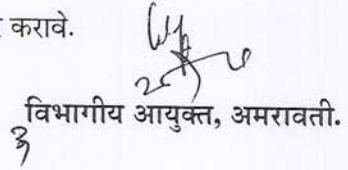 करावे.
विभागीय आयुक्त, अमरावती.